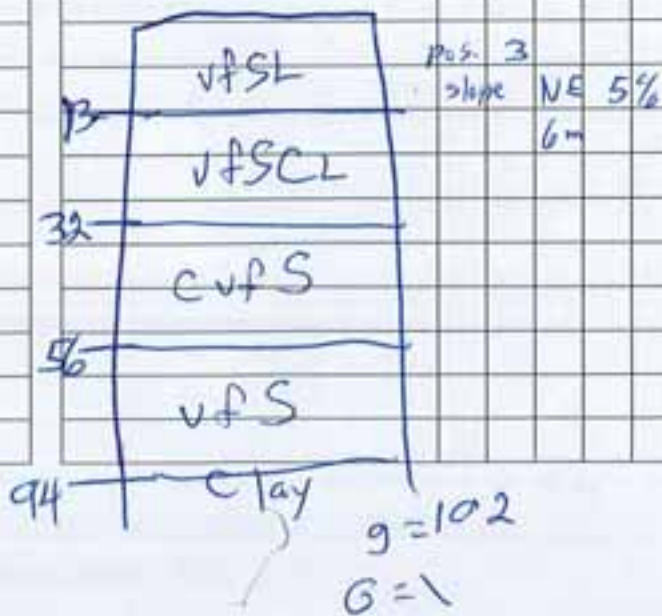 vfSL
pos. 3
slope NE 5%
13
6m
vfSCL
32
cvfS
56
vfS
94
Clay
g=102
G=\